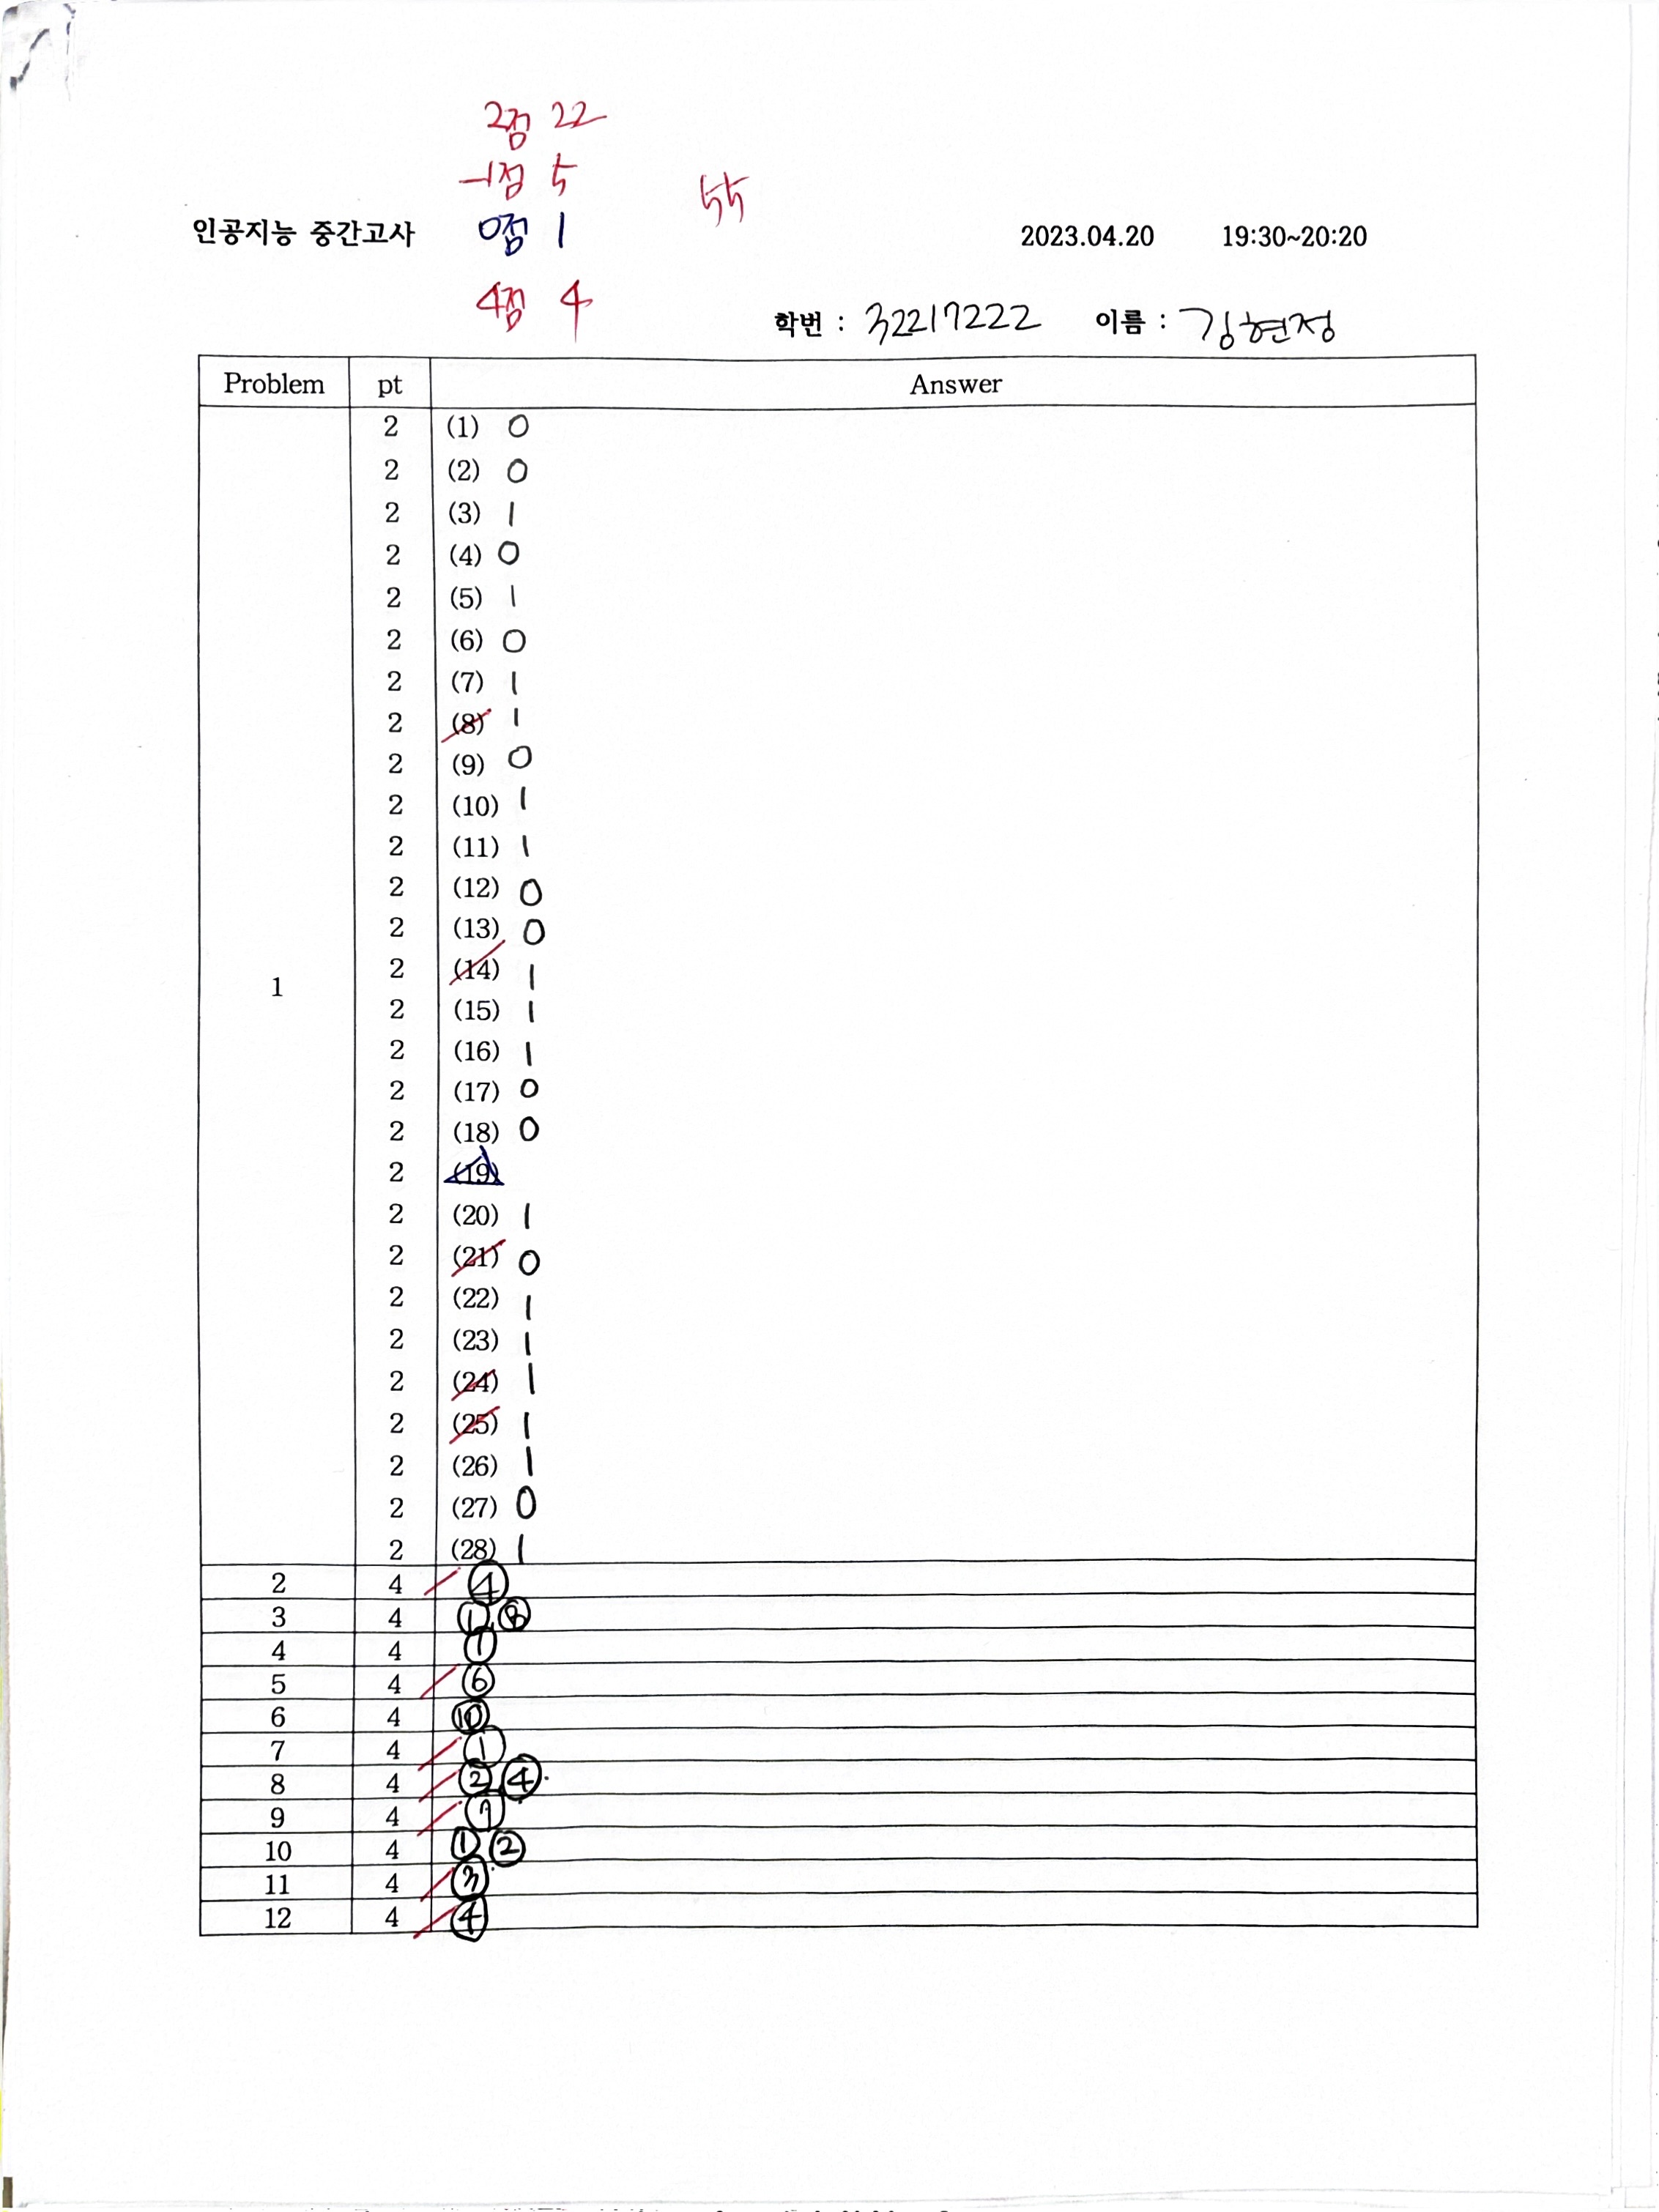 2점 22
-1점 5
55
인공지능 중간고사 0점 1 2023.04.20 19:30~20:20
4점 4
학번 : 32217222 이름 : 김현정
Problem pt Answer
2 (1) 0
2 (2) 0
2 (3) 1
2 (4) 0
2 (5) 1
2 (6) 0
2 (7) 1
2 (8) 1
2 (9) 0
2 (10) 1
2 (11) 1
2 (12) 0
2 (13) 0
2 (14) 1
1
2 (15) 1
2 (16) 1
2 (17) 0
2 (18) 0
2 (19)
2 (20) 1
2 (21) 0
2 (22) 1
2 (23) 1
2 (24) 1
2 (25) 1
2 (26) 1
2 (27) 0
2 (28) 1
2 4 ④
3 4 ①, ⑧
4 4
5 4 ⑥
6 4 ⑩
7 4 ①
8 4 ②, ④
9 4
10 4 ① ②
11 4 ③
12 4 ④